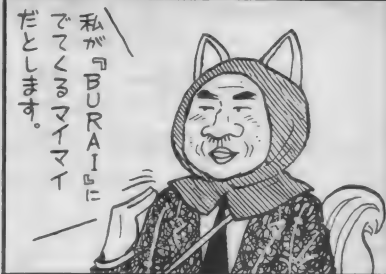 私が『BURAI』に
でてくるマイマイ
だとします。